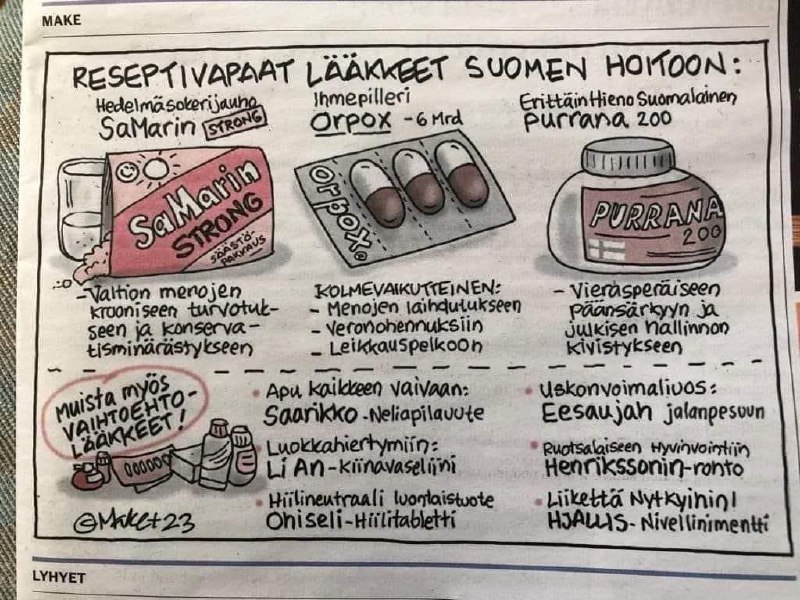 MAKE
RESEPTIVAPAAT LÄÄKKEET SUOMEN HOITOON:
Hedelmäsokerijauho
SaMarin STRONG
SaMarin
STRONG
SÄÄSTÖ-
PAKKAUS
- Valtion menojen
krooniseen turvotuk-
seen ja konserva-
tisminärästykseen
Ihmepilleri
Orpox - 6 Mrd
orpox
KOLMEVAIKUTTEINEN:
- Menojen laihdutukseen
- Veronohennuksiin
- Leikkauspelkoon
Erittäin Hieno Suomalainen
Purrana 200
PURRANA
200
- Vierasperäiseen
päänsärkyyn ja
julkisen hallinnon
kivistykseen
Muista myös
VAIHTOEHTO-
LÄÄKKEET!
• Apu kaikkeen vaivaan:
Saarikko - Neliapilavoide
• Luokkahiertymiin:
Li An - Kiinavaseliini
• Hiilineutraali luontaistuote
Ohiseli - Hiilitabletti
• Uskonvoimaliuos:
Eesaujah jalanpesuun
• Ruotsalaiseen Hyvinvointiin
Henrikssonin - rohto
• Liikettä Nytkyihin!
HJALLIS - Nivellinimentti
@Maket23
LYHYET